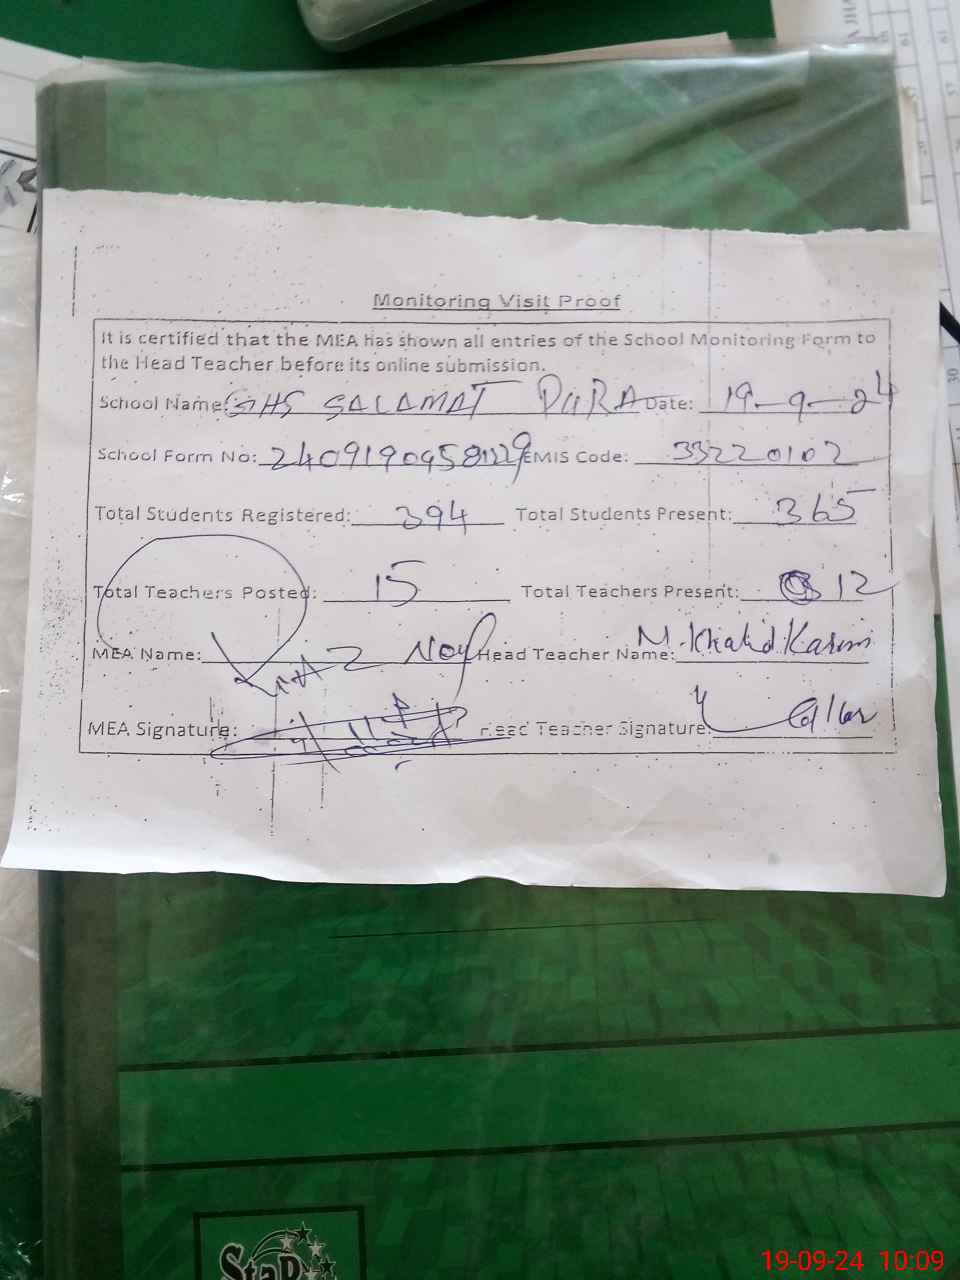 Monitoring Visit Proof
It is certified that the MEA has shown all entries of the School Monitoring Form to
the Head Teacher before its online submission.
School Name: GHS SALAMAT PURA Date: 19-9-24
School Form No: EMIS Code: 33220102
Total Students Registered: 394 Total Students Present: 365
Total Teachers Posted: 15 Total Teachers Present: 12
MEA Name: Head Teacher Name: M. Khalid Karim
MEA Signature: Head Teacher Signature:
StaR
19-09-24 10:09